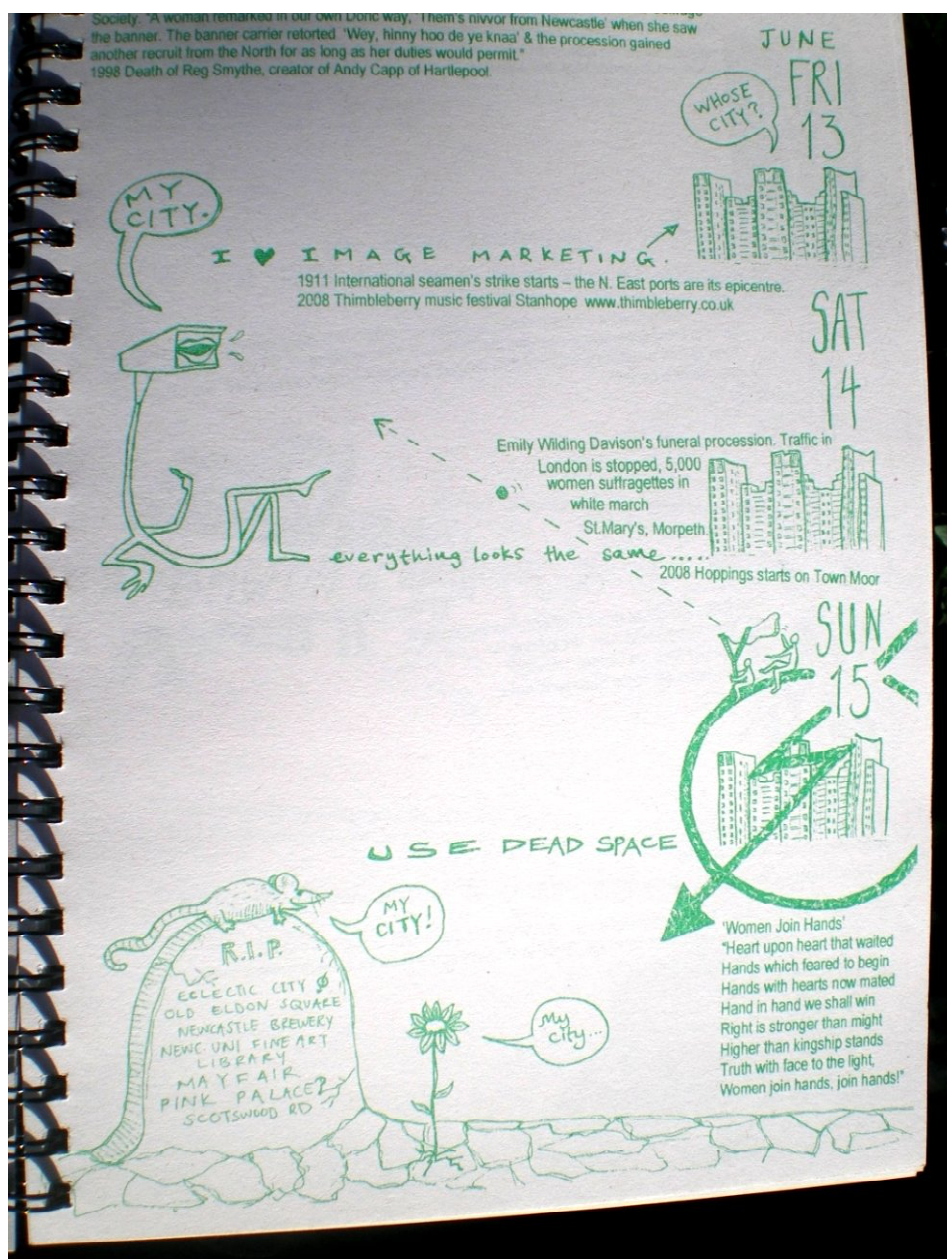 Society. "A woman remarked in our own Doric way, 'Them's nivvor from Newcastle' when she saw
the banner. The banner carrier retorted 'Wey, hinny hoo de ye knaa' & the procession gained
another recruit from the North for as long as her duties would permit."
1998 Death of Reg Smythe, creator of Andy Capp of Hartlepool.
JUNE
FRI
13
WHOSE
CITY?
MY
CITY.
I ♥ IMAGE MARKETING.
1911 International seamen's strike starts – the N. East ports are its epicentre.
2008 Thimbleberry music festival Stanhope www.thimbleberry.co.uk
SAT
14
Emily Wilding Davison's funeral procession. Traffic in
London is stopped, 5,000
women suffragettes in
white march
St.Mary's, Morpeth
everything looks the same.....
2008 Hoppings starts on Town Moor
SUN
15
USE DEAD SPACE
MY
CITY!
R.I.P.
ECLECTIC CITY
OLD ELDON SQUARE
NEWCASTLE BREWERY
NEWC. UNI FINE ART
LIBRARY
MAYFAIR
PINK PALACE?
SCOTSWOOD RD
My
city...
'Women Join Hands'
"Heart upon heart that waited
Hands which feared to begin
Hands with hearts now mated
Hand in hand we shall win
Right is stronger than might
Higher than kingship stands
Truth with face to the light,
Women join hands, join hands!"